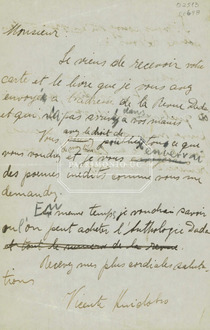 Monsieur
Je viens de recevoir votre
carte et le livre que je vous avez
envoyé à de la Revue Dada
et qui n'est pas arrivé dans vos mains
Vous avez le droit de publier tout ce que
vous voudrez et je vous enverrai
des poemes inédits comme vous me
demandez.
En même temps je voudrais savoir
ou l'on peut acheter l'Anthologie Dada
et tout le numero de la revue
Recevez mes plus cordiales saluta-
tions
Vicente Huidobro